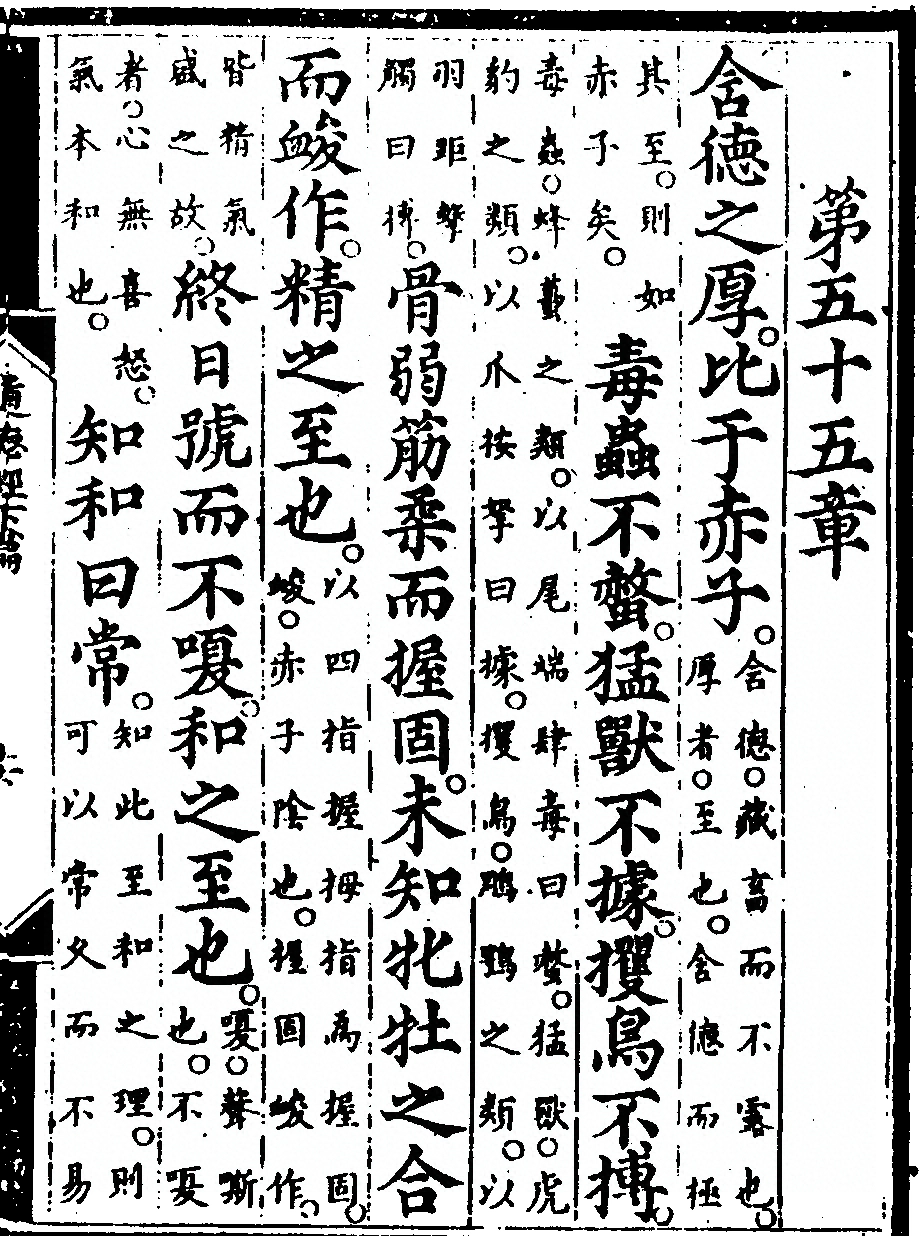 第五十五章
含德之厚。比于赤子。含德。藏畜而不露也。厚者。至也。含德而極
其至。則如赤子矣。毒蟲不螫。猛獸不據。攫鳥不搏。
毒蟲。蜂蠆之類。以尾端肆毒曰螫。猛獸。虎豹之類。以爪按拏曰據。攫鳥。鵰鶚之類。以
羽距擊觸曰搏。骨弱筋柔而握固。未知牝牡之合
而䘒作。精之至也。以四指握拇指爲握固。䘒。赤子陰也。握固䘒作。
皆精氣盛之故。終日號而不嗄。和之至也。嗄。聲嘶也。不嗄
者。心無喜怒。氣本和也。知和曰常。知此至和之理。則可以常久而不易
道德經下篇